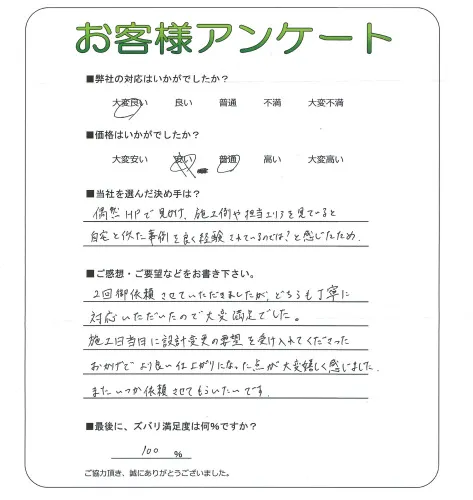 お客様アンケート
■弊社の対応はいかがでしたか？
大変良い 良い 普通 不満 大変不満
■価格はいかがでしたか？
大変安い 安い 普通 高い 大変高い
■当社を選んだ決め手は？
偶然HPで見かけ、施工例や担当エリアを見ていると
自宅と似た事例を良く経験されているのでは？と感じたため.
■ご感想・ご要望などをお書き下さい。
2回御依頼させていただきましたが、どちらも丁寧に
対応いただいたので大変満足でした。
施工日当日に設計変更の要望を受け入れてくださった
おかげでより良い仕上がりになった点が大変嬉しく感じました.
またいつか依頼させてもらいたいです.
■最後に、ズバリ満足度は何％ですか？
100 %
ご協力頂き、誠にありがとうございました。